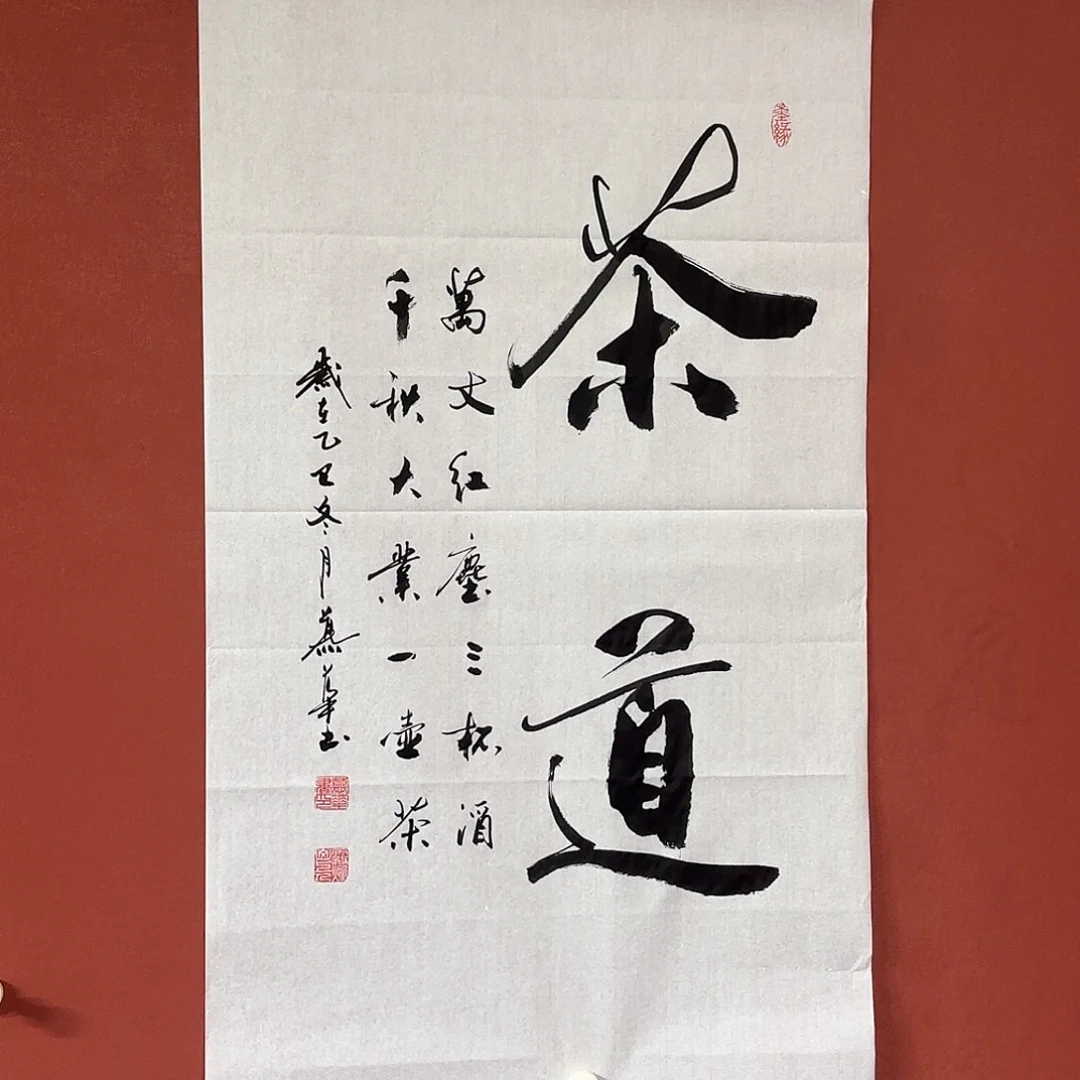 茶道
萬丈紅塵三杯酒
千秋大業一壺茶
歲在乙巳冬月蕉華書
墨緣